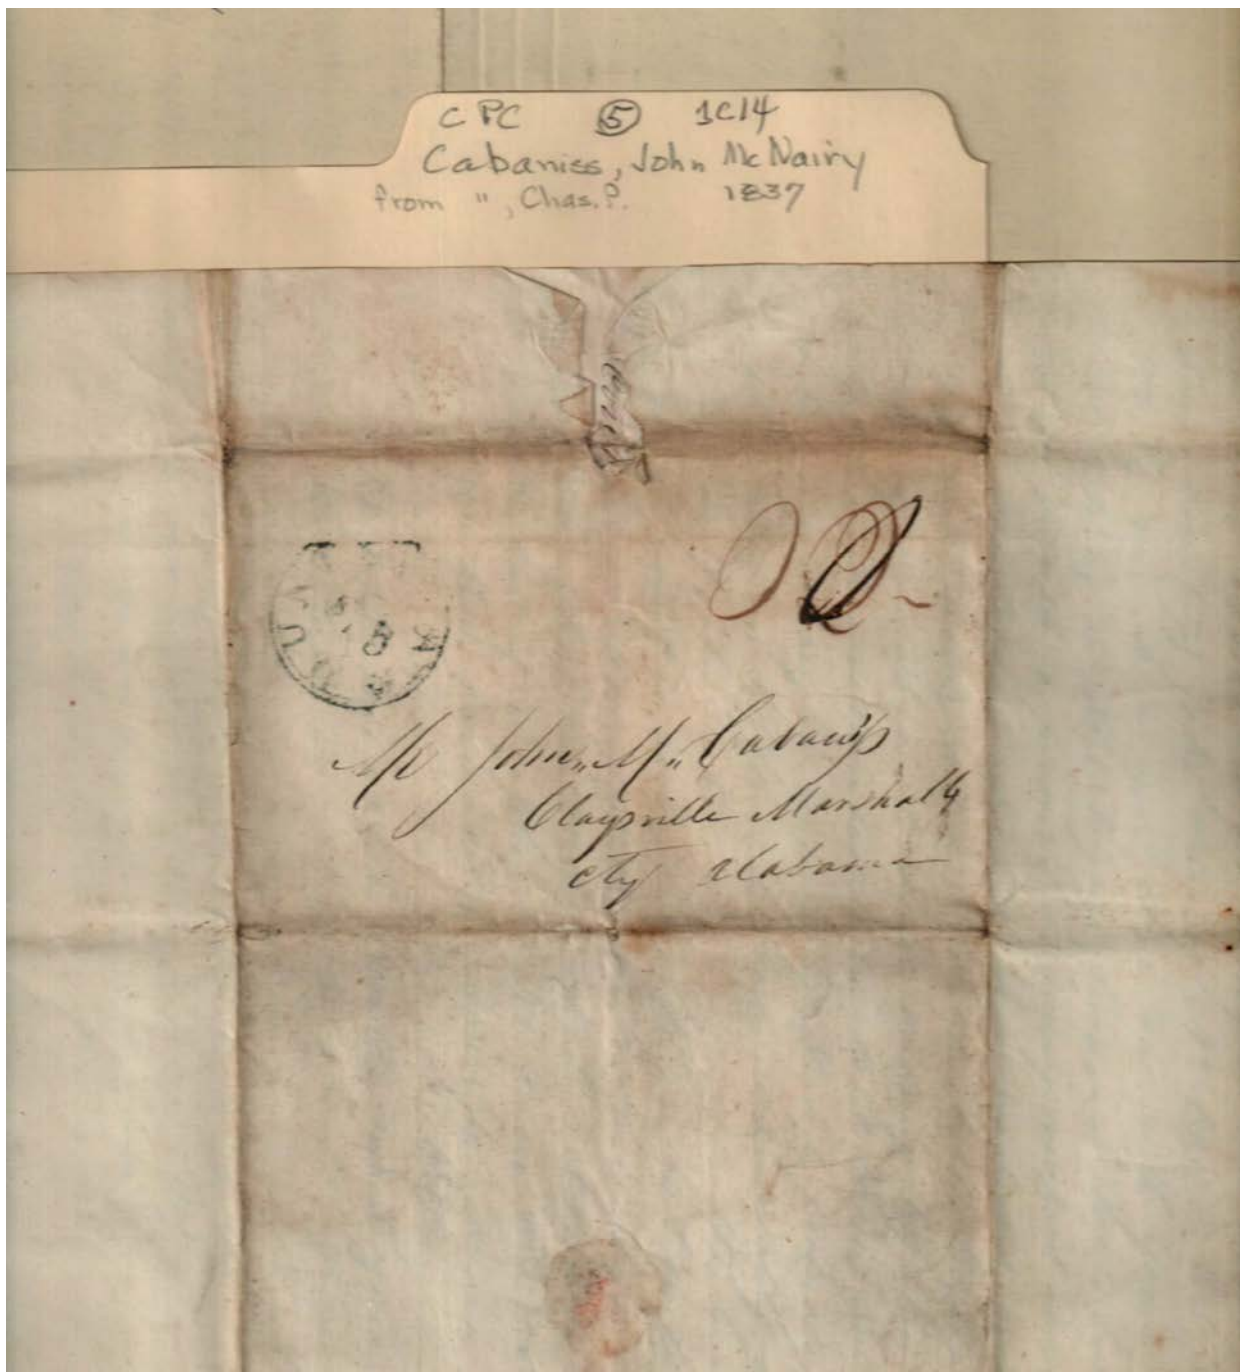 CPC ⑤ 1C14
Cabaniss, John McNairy
from " , Chas. P. 1837
Mr John M Cabaniss
Claysville Marshall
cty Alabama